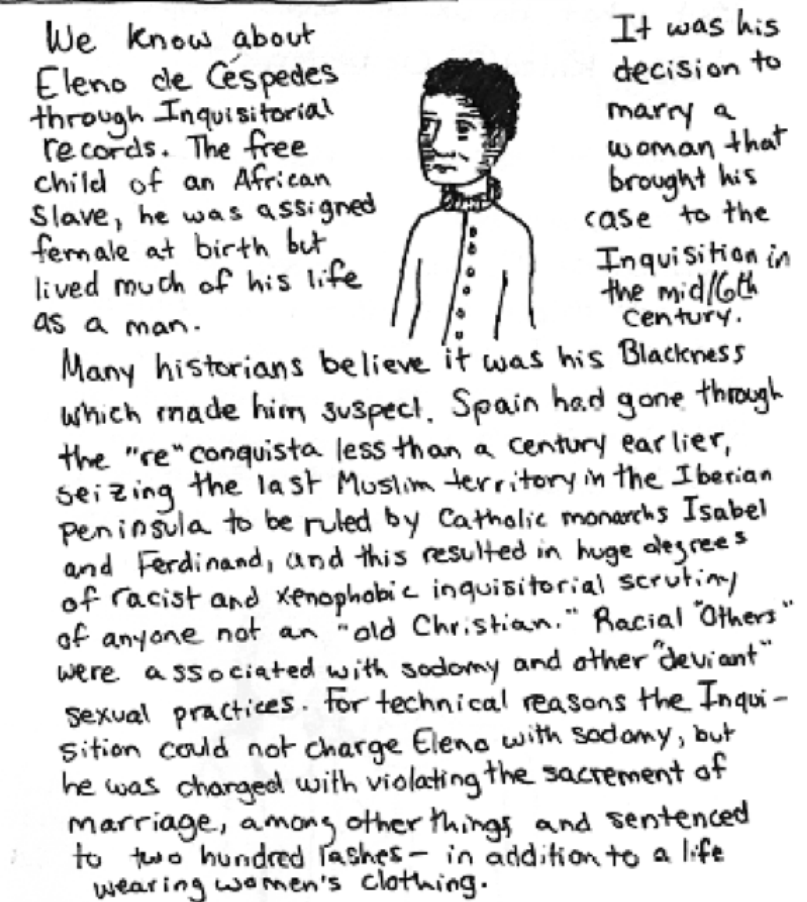 We know about
Eleno de Céspedes
through Inquisitorial
records. The free
child of an African
Slave, he was assigned
female at birth but
lived much of his life
as a man.
It was his
decision to
marry a
woman that
brought his
case to the
Inquisition in
the mid/6th
century.
Many historians believe it was his Blackness
which made him suspect. Spain had gone through
the "re"conquista less than a century earlier,
seizing the last Muslim territory in the Iberian
Peninsula to be ruled by Catholic monarchs Isabel
and Ferdinand, and this resulted in huge degrees
of racist and xenophobic inquisitorial scrutiny
of anyone not an "old Christian." Racial "Others"
were associated with sodomy and other "deviant"
sexual practices. For technical reasons the Inqui-
sition could not charge Eleno with sodomy, but
he was charged with violating the sacrement of
marriage, among other things and sentenced
to two hundred lashes- in addition to a life
wearing women's clothing.